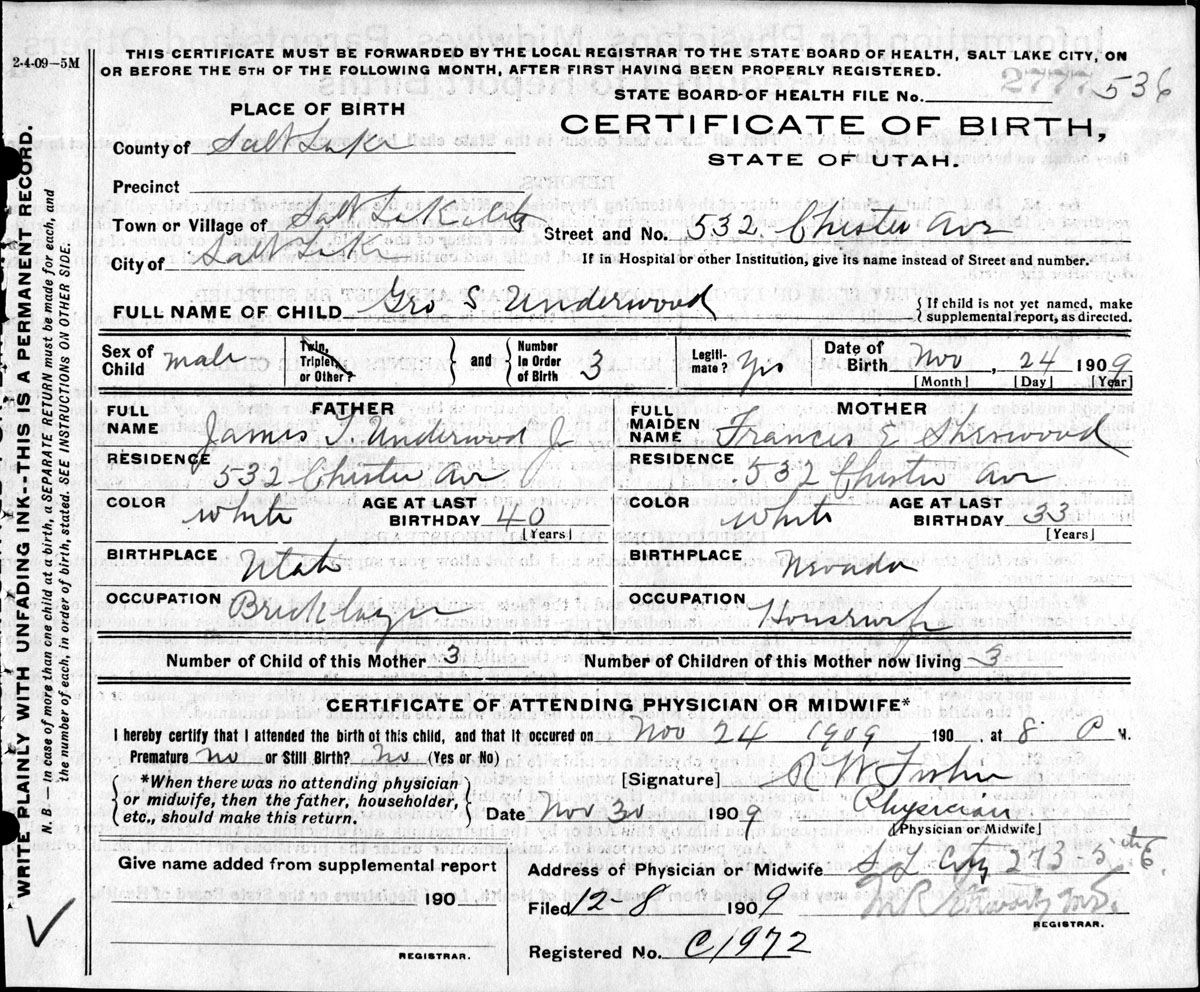 2-4-09—5M
THIS CERTIFICATE MUST BE FORWARDED BY THE LOCAL REGISTRAR TO THE STATE BOARD OF HEALTH, SALT LAKE CITY, ON
OR BEFORE THE 5TH OF THE FOLLOWING MONTH, AFTER FIRST HAVING BEEN PROPERLY REGISTERED.
STATE BOARD OF HEALTH FILE No. 2777 536
PLACE OF BIRTH
CERTIFICATE OF BIRTH,
STATE OF UTAH.
County of Salt Lake
Precinct
Town or Village of Salt Lake City
Street and No. 532 Chester Ave
City of Salt Lake
If in Hospital or other Institution, give its name instead of Street and number.
FULL NAME OF CHILD Geo S Underwood
{If child is not yet named, make
supplemental report, as directed.
Sex of Child male
Twin, Triplet, or Other?
and
Number in Order of Birth 3
Legiti-mate? Yes
Date of Birth Nov, 24 1909
[Month] [Day] [Year]
FATHER
MOTHER
FULL NAME James T Underwood Jr
FULL MAIDEN NAME Frances E Sherwood
RESIDENCE 532 Chester Ave
RESIDENCE 532 Chester Ave
COLOR White AGE AT LAST BIRTHDAY 40 [Years]
COLOR White AGE AT LAST BIRTHDAY 33 [Years]
BIRTHPLACE Utah
BIRTHPLACE Nevada
OCCUPATION Bricklayer
OCCUPATION Housewife
Number of Child of this Mother 3
Number of Children of this Mother now living 3
CERTIFICATE OF ATTENDING PHYSICIAN OR MIDWIFE*
I hereby certify that I attended the birth of this child, and that it occured on Nov 24 1909 190 at 8 P M.
Premature No or Still Birth? No (Yes or No)
*When there was no attending physician
or midwife, then the father, householder,
etc., should make this return.
[Signature] R W Fisher
Date Nov 30 1909 Physician
[Physician or Midwife]
Give name added from supplemental report
190
REGISTRAR.
Address of Physician or Midwife S L City 273 5
Filed 12-8 1909
REGISTRAR.
Registered No. C1972
WRITE PLAINLY WITH UNFADING INK--THIS IS A PERMANENT RECORD.
N. B.—In case of more than one child at a birth, a SEPARATE RETURN must be made for each, and
the number of each, in order of birth, stated. SEE INSTRUCTIONS ON OTHER SIDE.